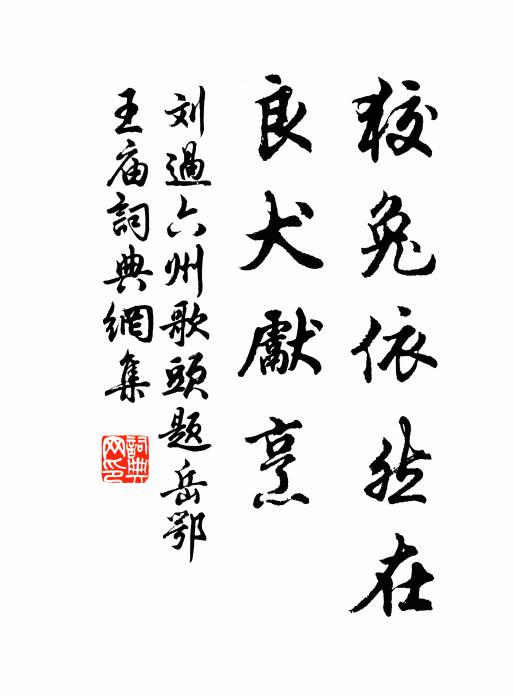 狡兔依然在
良犬獻烹
刘過六州歌頭題岳鄂
王庙詞典網集
詞典
网印